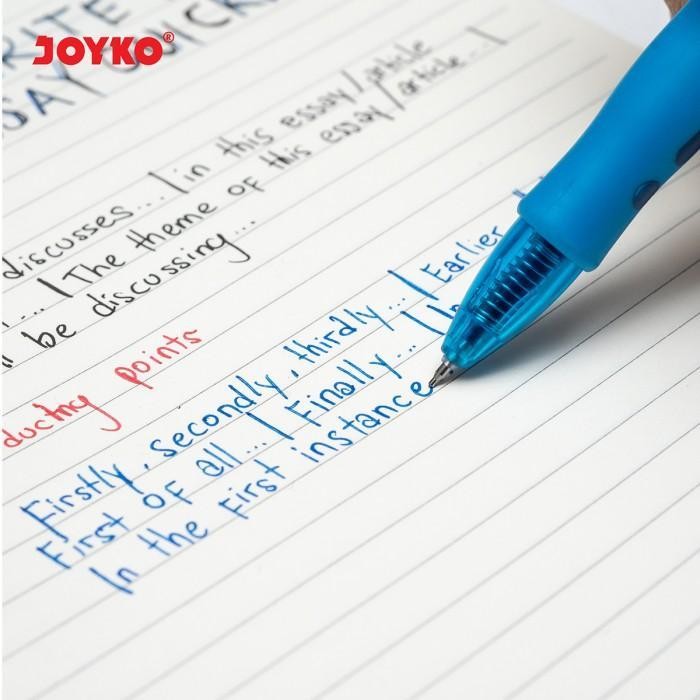 JOYKO®
discusses... / in this essay/article
... / The theme of this essay/article... /
be discussing...
points
Firstly, secondly, thirdly... / Earlier
First of all... / Finally... /
In the First instance